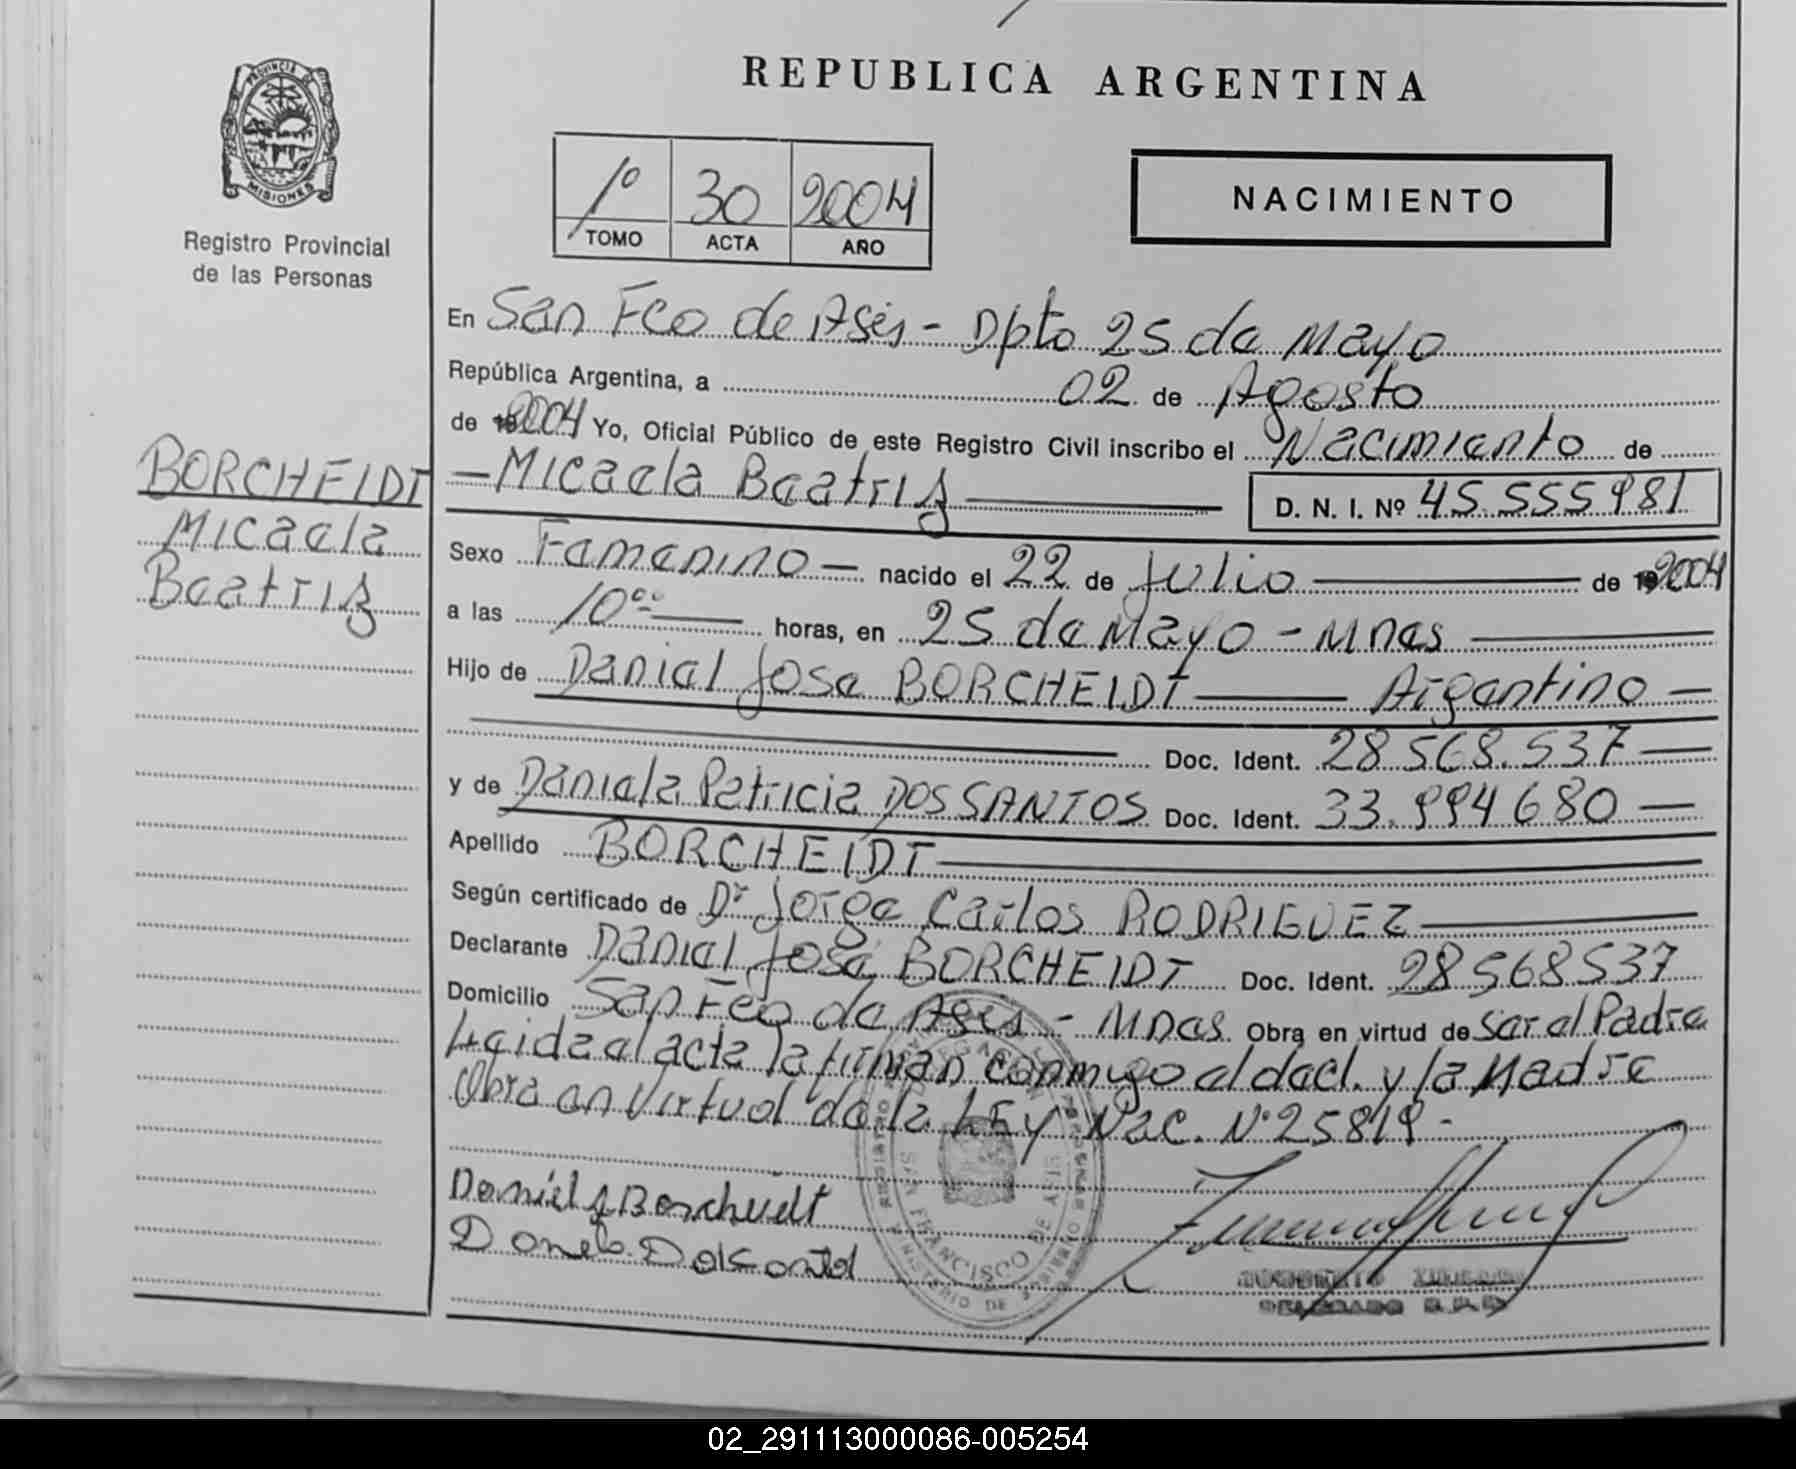 REPUBLICA ARGENTINA
PROVINCIA DE MISIONES
Registro Provincial
de las Personas
1º 30 2004
TOMO ACTA AÑO
NACIMIENTO
En San Fco de Asis - Dpto 25 de Mayo
República Argentina, a 02 de Agosto
de 2004 Yo, Oficial Público de este Registro Civil inscribo el Nacimiento de
BORCHEIDT
Micaela
Beatriz
- Micaela Beatriz
D. N. I. Nº 45.555981
Sexo Femenino - nacido el 22 de Julio de 2004
a las 10ºº horas, en 25 de Mayo - Mnes
Hijo de Daniel Jose BORCHEIDT Argentino -
Doc. Ident. 28.568.537
y de Daniela Patricia DOS SANTOS Doc. Ident. 33.994680
Apellido BORCHEIDT
Según certificado de Dr Jorge Carlos RODRIGUEZ
Declarante Daniel José BORCHEIDT Doc. Ident. 28568537
Domicilio San Fco de Asis - Mnes Obra en virtud de ser el Padre
Leida el acta la firman conmigo el decl. y la Madre
Obra en Virtud de la LEY Nac. Nº 25819 -
Daniel J Borcheidt
SAN FRANCISCO DE ASIS
02_291113000086-005254